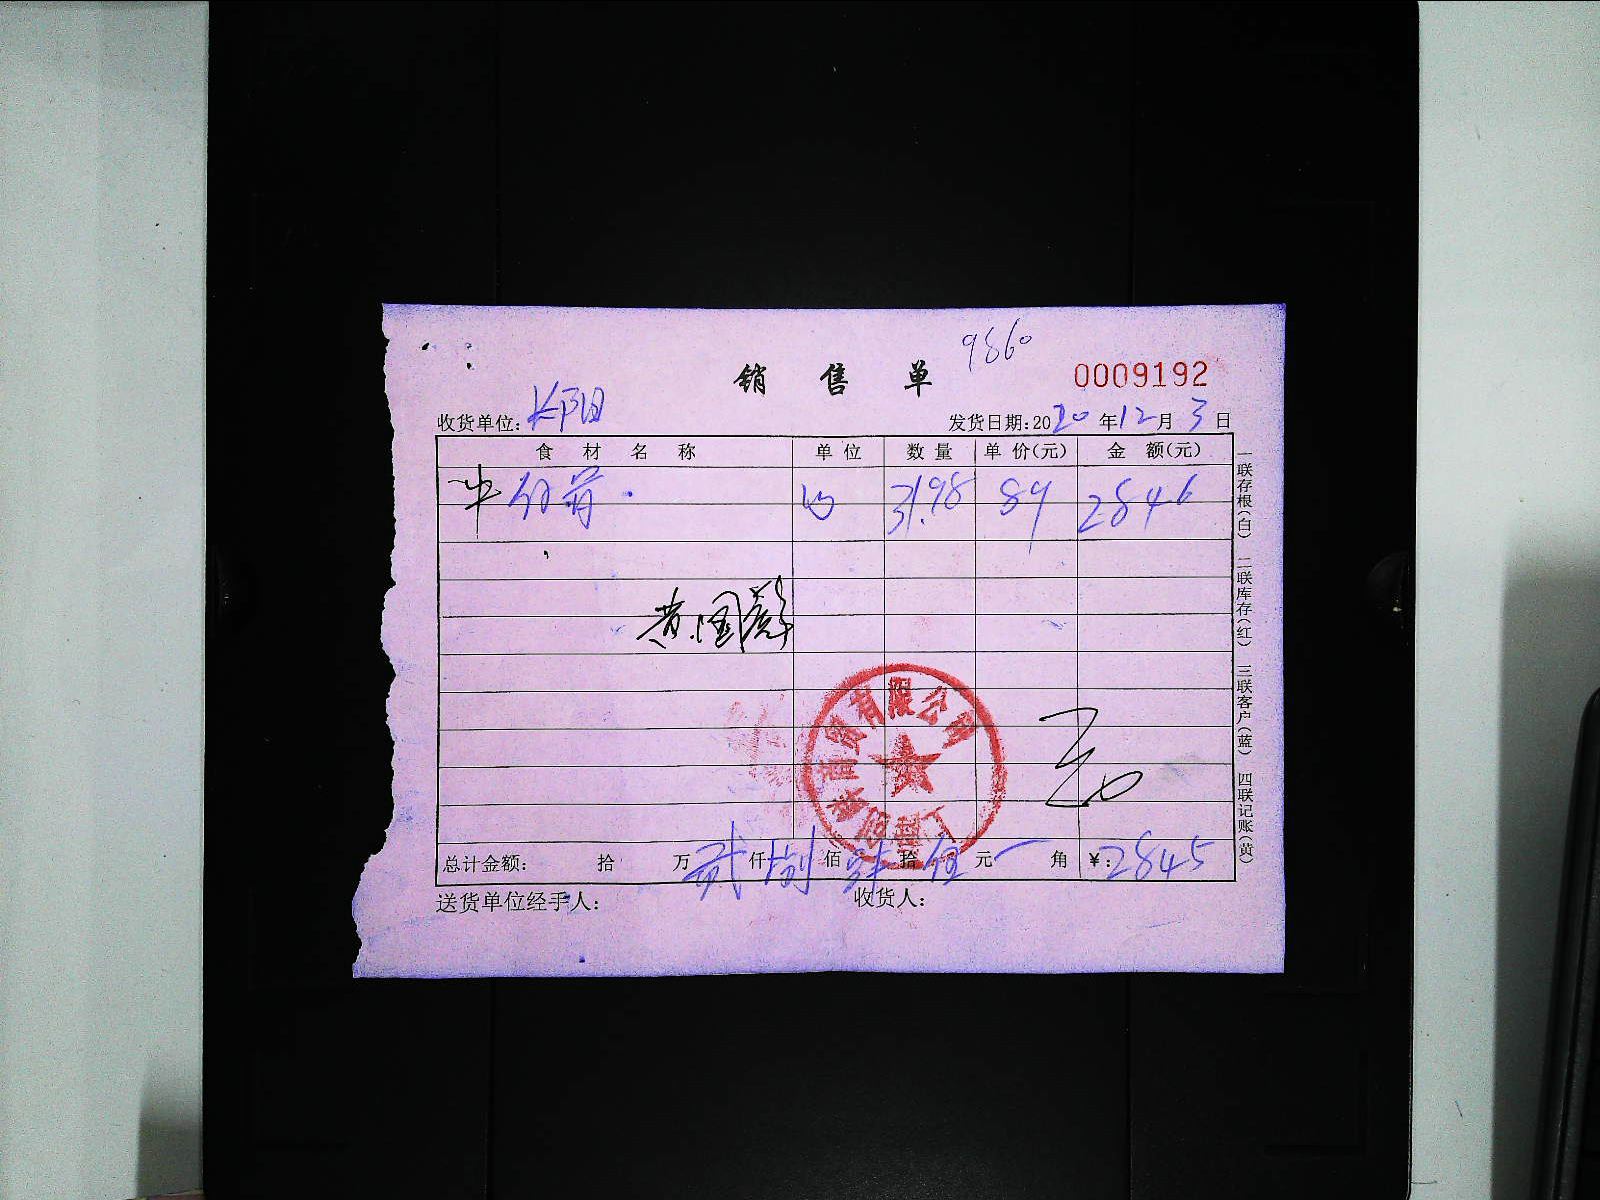 9860
销售单
0009192
收货单位：长阳
发货日期：2020年12月3日
食材名称 单位 数量 单价(元) 金额(元)
牛 31.98 89 2846
黄国
贸有限公司
总计金额： 拾 万 贰 仟 捌 佰 肆 拾 伍 元 一 角 ¥：2845
送货单位经手人： 收货人：
一联存根(白) 二联库存(红) 三联客户(蓝) 四联记账(黄)